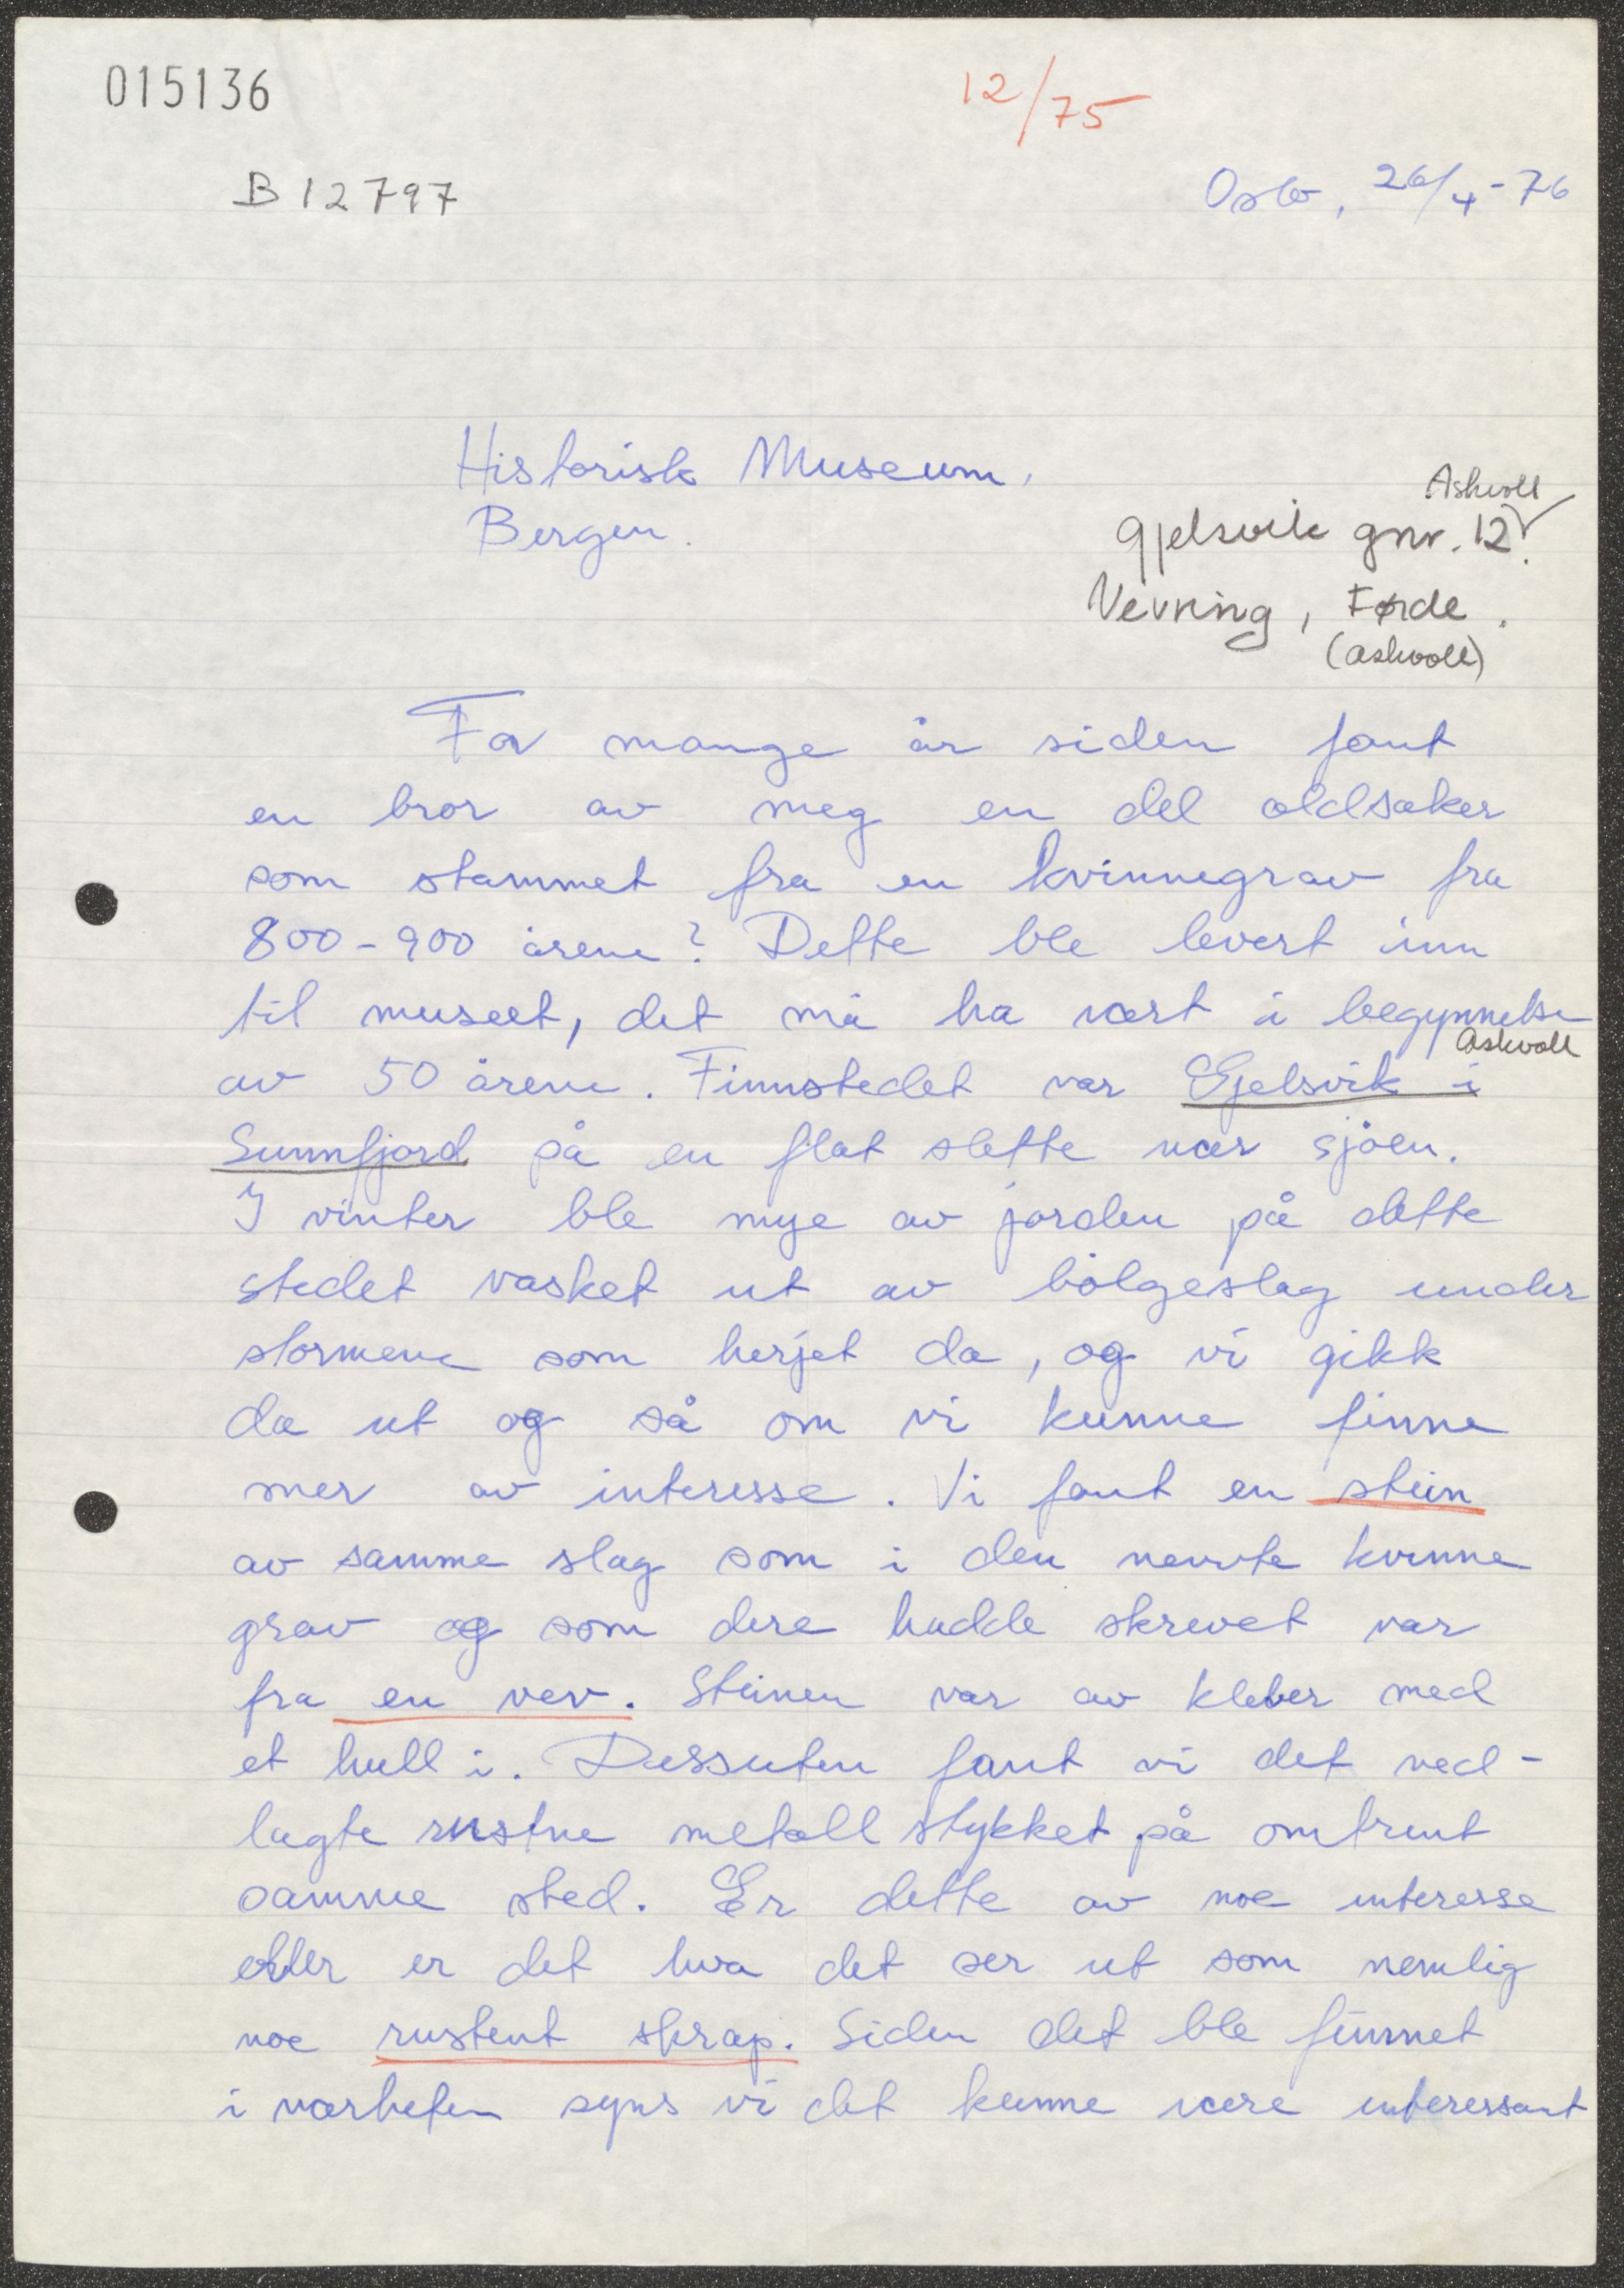 015136
12/75
B 12797
Oslo, 26/4-76
Historisk Museum,
Bergen.
Askvoll
Gjelsvik gnr. 12.
Vevring, Førde.
(Askvoll)
For mange år siden fant
en bror av meg en del oldsaker
som stammet fra en kvinnegrav fra
800-900 årene? Dette ble levert inn
til museet, det må ha vært i begynnelse
Askvoll
av 50 årene. Finnstedet var Gjelsvik i
Sunnfjord på en flat slette nær sjøen.
I vinter ble mye av jorden på dette
stedet vasket ut av bølgeslag under
stormene som herjet da, og vi gikk
da ut og så om vi kunne finne
mer av interesse. Vi fant en stein
av samme slag som i den nevnte kvinne
grav og som dere hadde skrevet var
fra en vev. Steinen var av kleber med
et hull i. Dessuten fant vi det ved-
lagte rustne metall stykket på omtrent
samme sted. Er dette av noe interesse
eller er det hva det ser ut som nemlig
noe rustent skrap. Siden det ble funnet
i nærheten syns vi det kunne være interessant